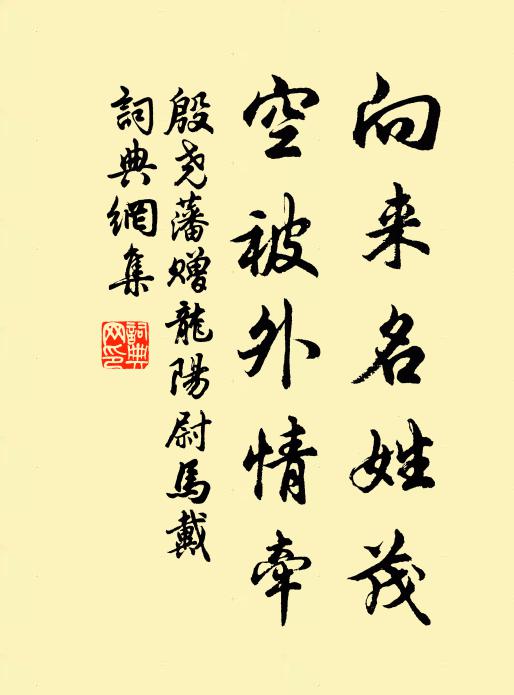 向来名姓茂
空被外情牵
殷尧藩赠龍陽尉馬戴
詞典網集
詞典网印